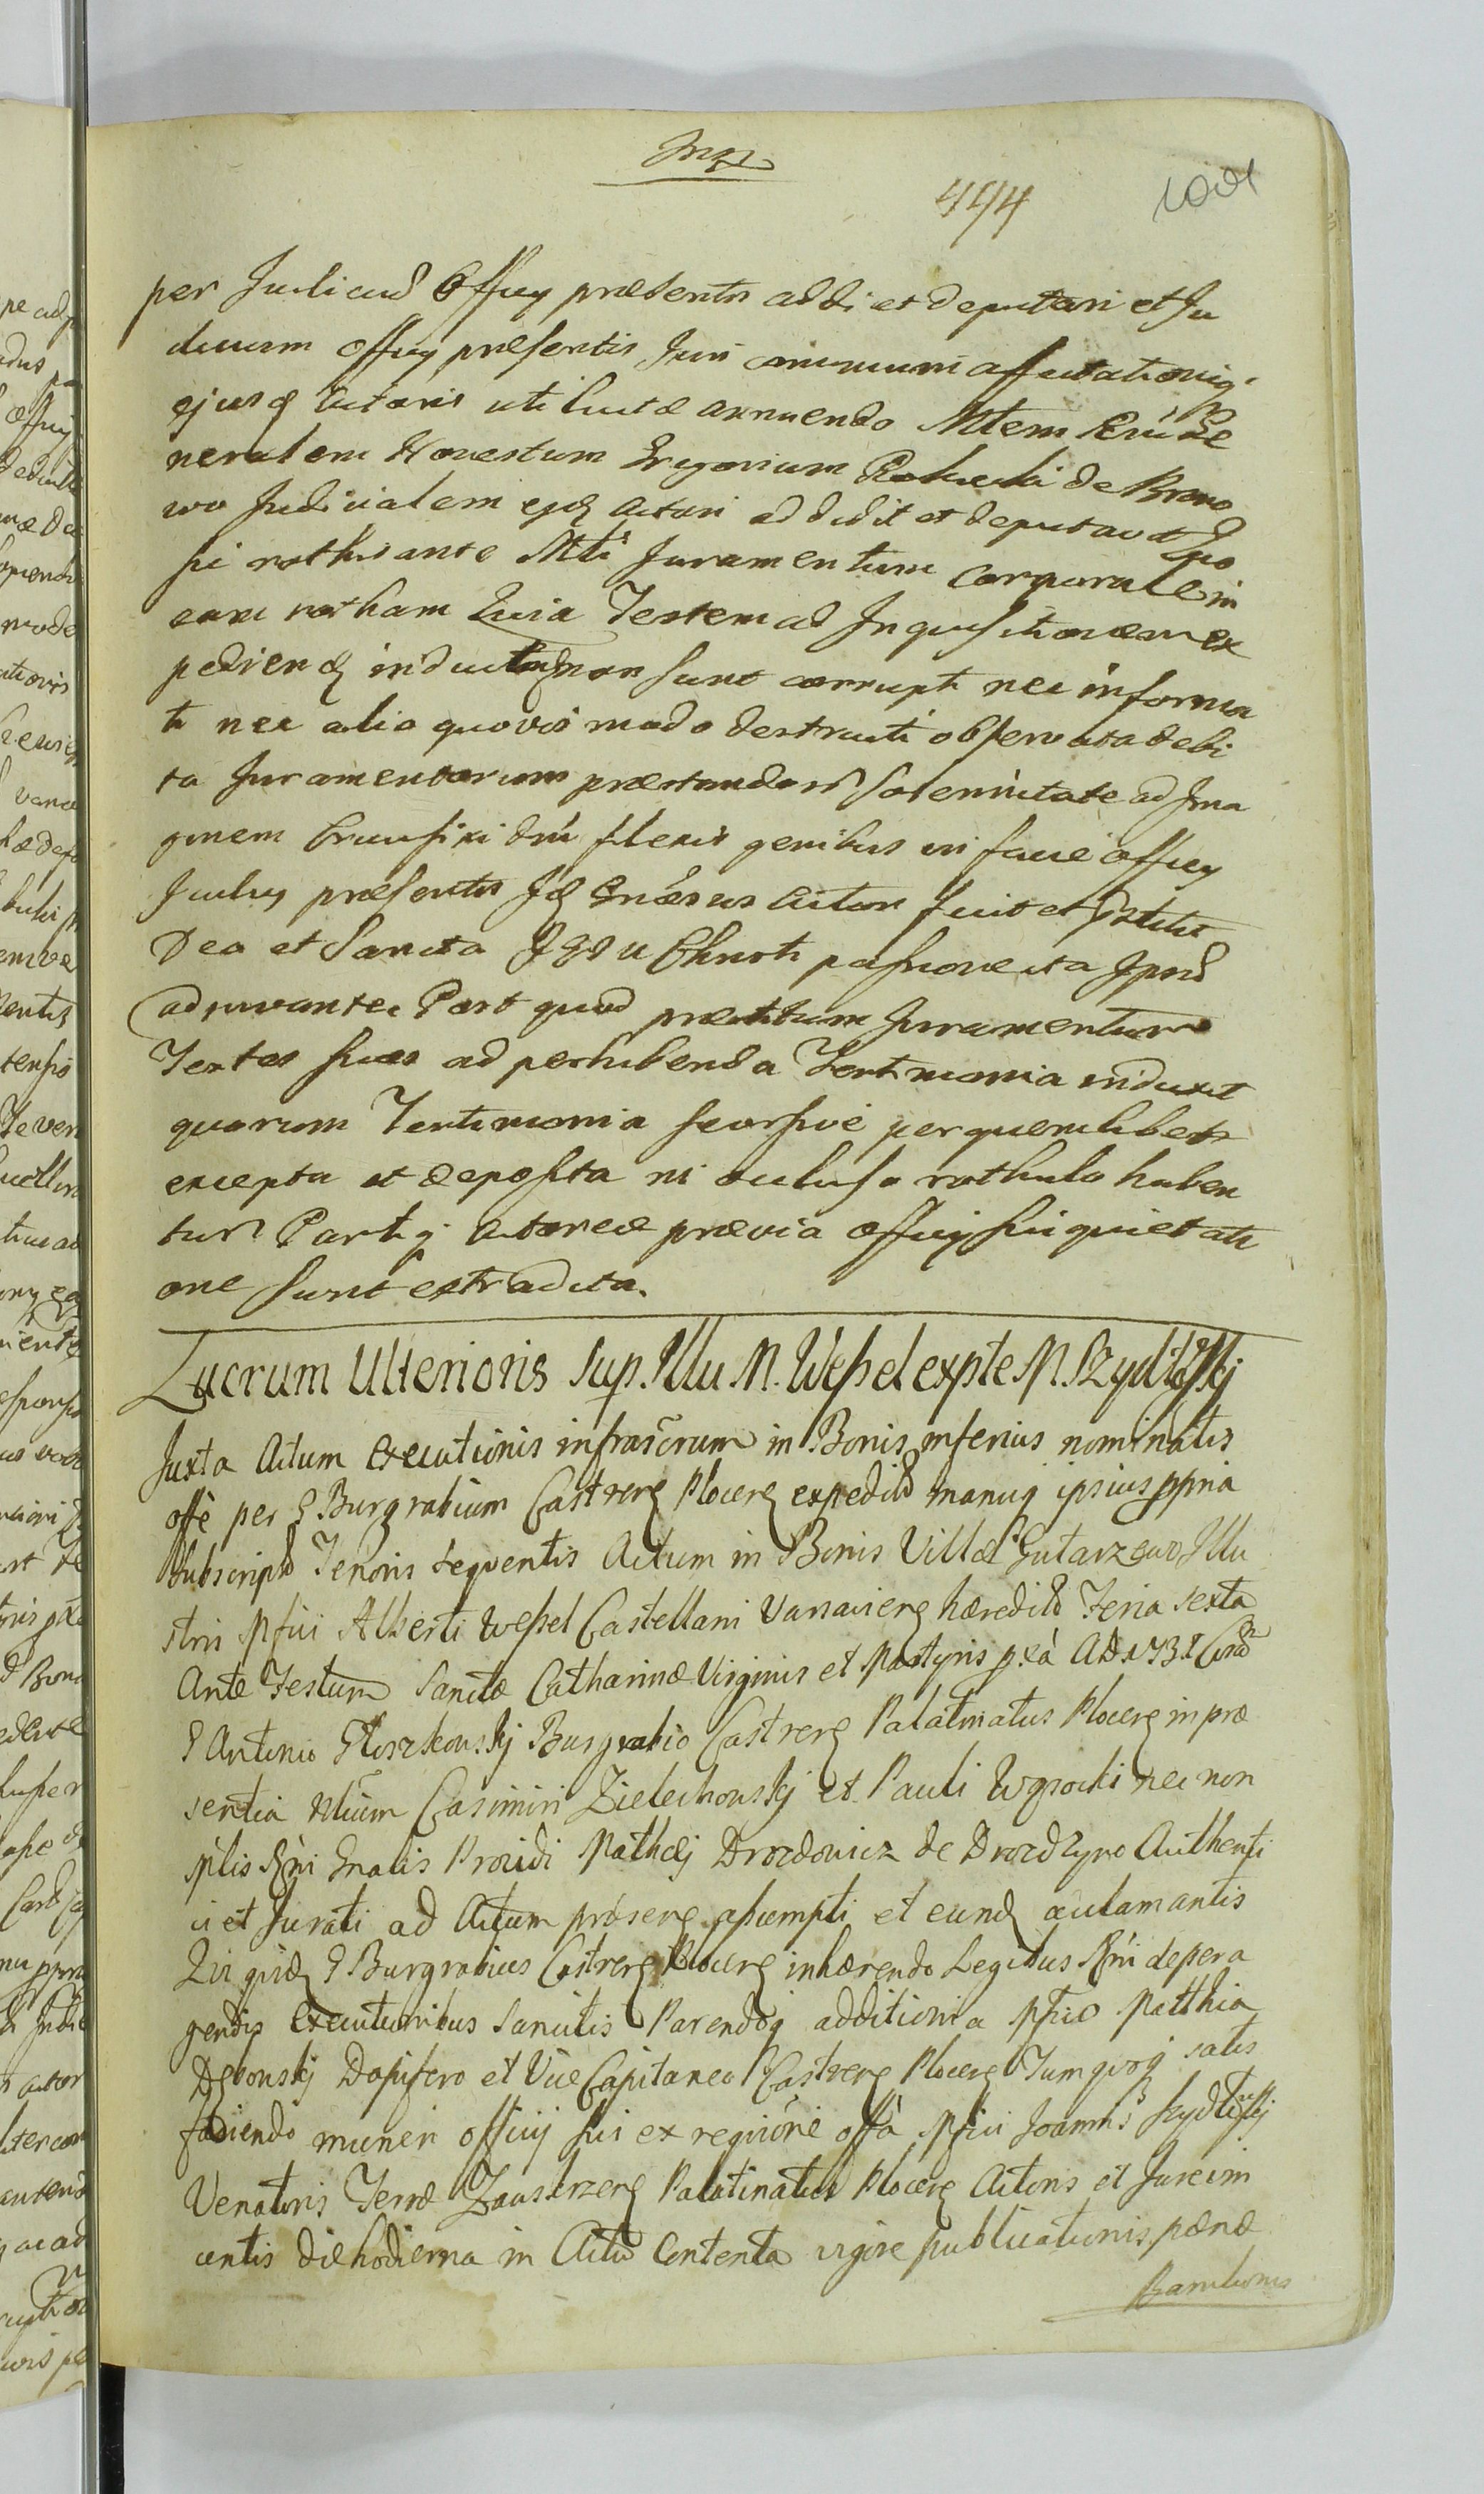 494
per Judicium Officy præsentis addi et deputari et Ju
dicium officy præsentis Juri communi affectationiq
ejusd Actoris uti lucitæ annuendo Mtem
neralem Honestum Gregorium de
wo Judicialem eqd Actori addidit et deputavit Quo
sui rothusante Mli Juramentum corporale in
eam rotham Quia Testem ad Inquisitionem ex
pediend inducti non sunt corrupti nec informa
ti nec alio quovis modo destructi observata debi
ta Juramentorum præstandor solennitate ad Ima
ginem Crucifixi Dni flexis genibus in facie officy
Judicy præsentis Jd Gnosus Actor fecit et pstitit
Deo et Sancta JESU Christi passione ita Ipsum
adjuvante Post quod præstitum Juramentum
Testes suos ad perhibenda Testimonia induxit
quorum Testimonia seorsive per quemlibet
excepta et deposita in occluso rothulo haben
tur Partiq Actoreæ prævia officy sui quietati
one sunt extradita.
Lucrum Ulterioris Sup. Illu M. Weßel expte M. Szydłowskj
Juxta Actum Executionis infrascrum in Bonis inferius nominatis
offe per G Burgrabium Castrens Plocens expeditu manuq ipsius ppria
Subscriptu Tenoris sequentis Actum in Bonis Villæ Gutarzewo Illu
stris Mfici Alberti Weßel Castellani Varsaviens hæredito Feria sexta
Ante Festum Sanctæ Catharinæ Virginis et Martyris pxa AD 173 Corā
G Antonio Burgrabio Castrens Palatinatus Plocens in præ
sentia Nlium Casimiri Zielechouskj et Pauli Wąsocki nec non
Mtlis Rni Gnalis Providi Mathæj Drozdowicz de Drozdzyno Authenti
ci et Jurati ad Actum prosens assumpti et eund acclamantis
Qui quid G Burgrabius Castrens Plocens inhærendo Legibus Rni de pera
gendis Executionibus Sancitis Parendoq additioni a Mfico Matthia
Dębouskj Dapifero et Vice Capitaneo Castrens Plocens Tum quoq satis
faciendo muneri officij sui ex requisitione offa Mfici Joannis Szydłowskj
Venatoris Terræ Zauskrzens Palatinatus Plocens Actoris et Jurevin
centis die hodierna in Actu Contenta vigore publicationis pænæ
Bannitionis